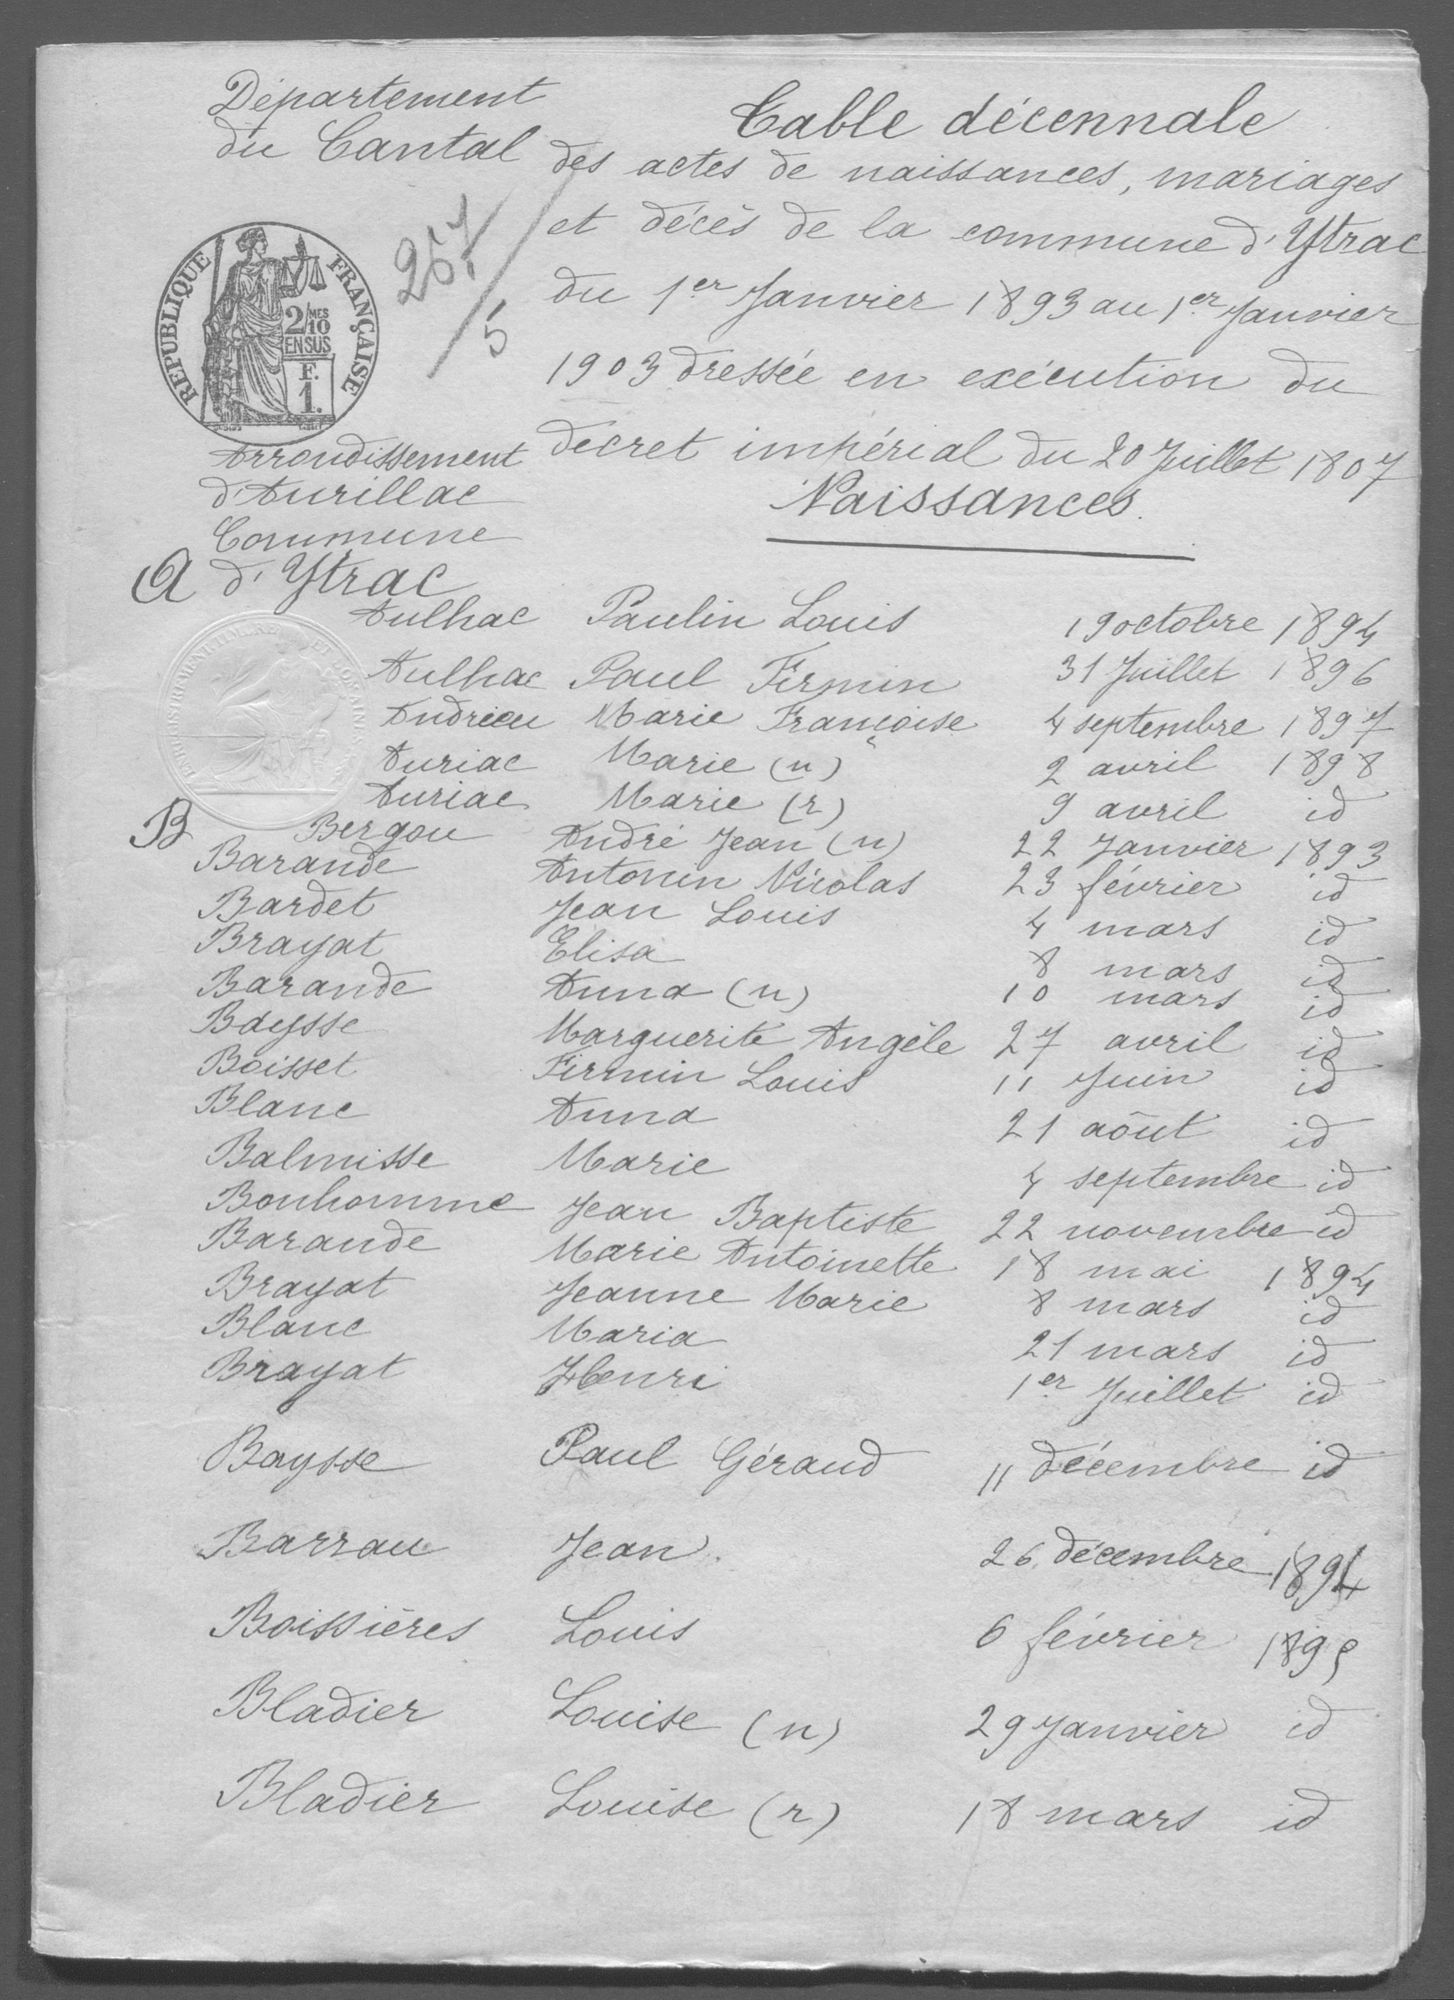 Département
du Cantal
Table décennale
des actes de naissances, mariages
et décès de la commune d'Ytrac
du 1er Janvier 1893 au 1er Janvier
1903 dressée en exécution du
décret impérial du 20 Juillet 1807
257/5
REPUBLIQUE FRANÇAISE
2/MES 10 EN SUS
F. 1.
Arrondissement
d'Aurillac
Commune
d'Ytrac
Naissances.
A
Aulhac Paulin Louis 19 octobre 1894
Aulhac Paul Firmin 31 Juillet 1896
Andrieu Marie Françoise 4 septembre 1897
Auriac Marie (n) 2 avril 1898
Auriac Marie (r) 9 avril id
B
Bergou André Jean (n) 22 Janvier 1893
Barande Antonin Nicolas 23 février id
Bardet Jean Louis 4 mars id
Brayat Elisa 8 mars id
Barande Anna (n) 10 mars id
Baysse Marguerite Angèle 27 avril id
Boisset Firmin Louis 11 Juin id
Blanc Anna 21 aôut id
Balmisse Marie 4 septembre id
Bonhomme Jean Baptiste 22 novembre id
Barande Marie Antoinette 18 mai 1894
Brayat Jeanne Marie 8 mars id
Blanc Maria 21 mars id
Brayat Henri 1er Juillet id
Baysse Paul Géraud 11 décembre id
Barrau Jean. 26 décembre 1894
Boissières Louis 6 février 1895
Bladier Louise (n) 29 Janvier id
Bladier Louise (r) 18 mars id